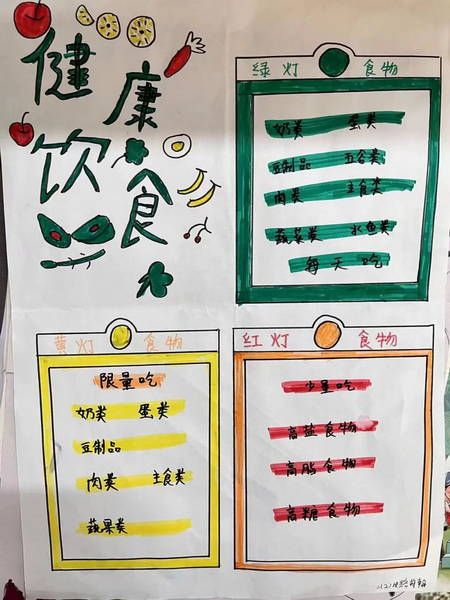 健康
饮食
绿灯 食物
奶类 蛋类
豆制品 五谷类
肉类 主食类
蔬菜类 水鱼类
每天吃
黄灯 食物
限量吃
奶类 蛋类
豆制品
肉类 主食类
蔬果类
红灯 食物
少量吃
高盐食物
高脂食物
高糖食物